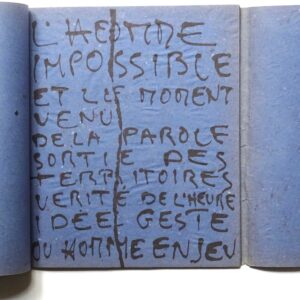 L'HEOMME
IMPOSSIBLE
ET LE MOMENT
VENU
DE LA PAROLE
SORTIE DES
TERRITOIRES
VERITÉ DE L'HEURE
IDÉE GESTE
OU HOMME EN JEU